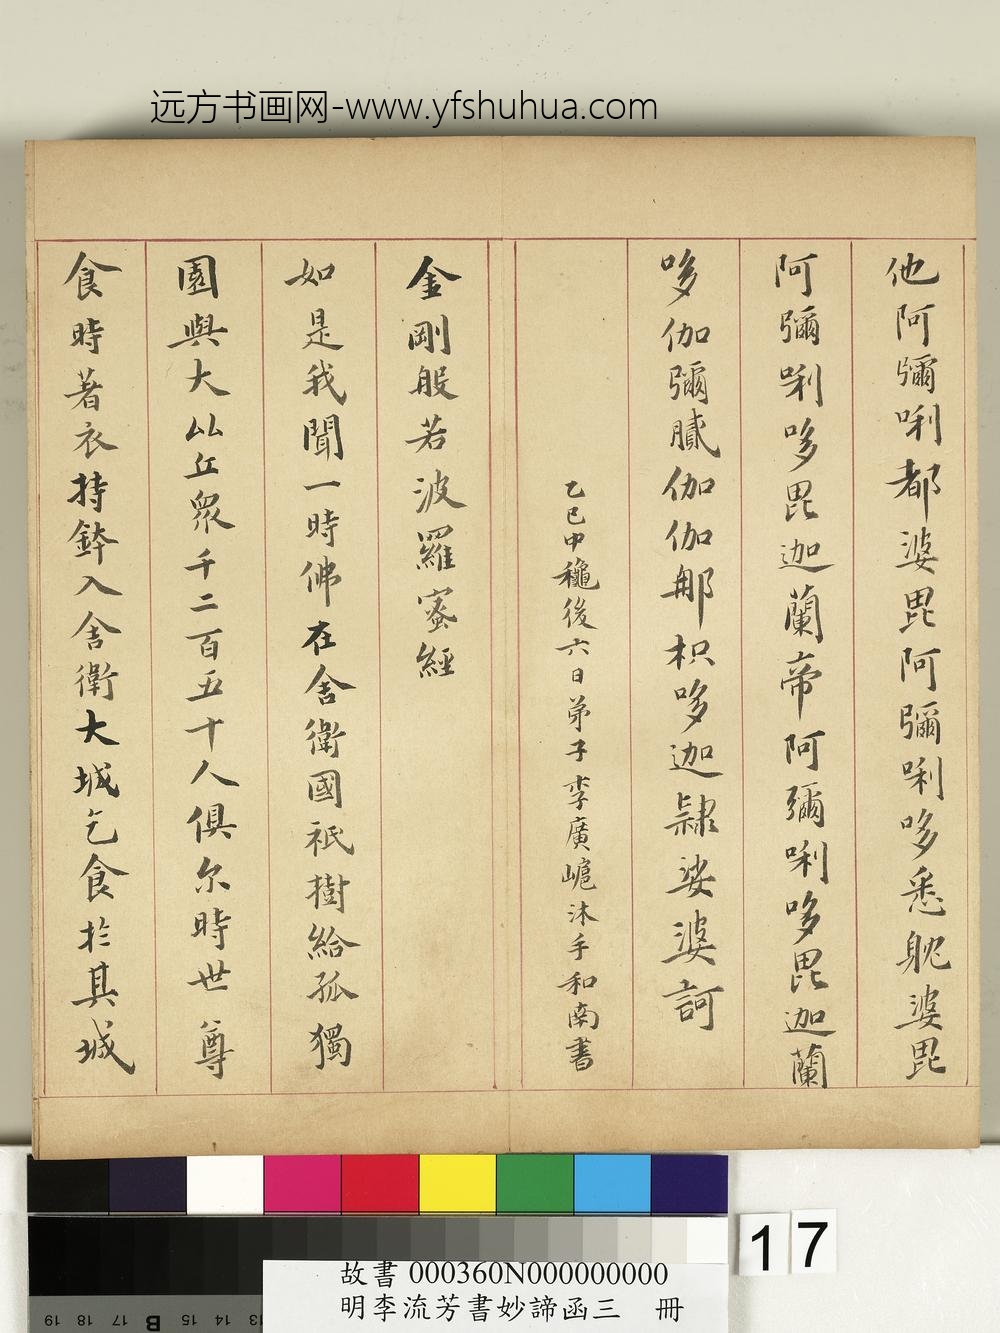 远方书画网-www.yfshuhua.com
他阿彌唎都婆毘阿彌唎哆悉躭婆毘
阿彌唎哆毘迦蘭帝阿彌唎哆毘迦蘭
哆伽彌膩伽伽那枳哆迦隷娑婆訶
乙巳中龝後六日弟子李廣㟴沐手和南書
金剛般若波羅蜜經
如是我聞一時佛在舍衛國祇樹給孤獨
園與大比丘眾千二百五十人俱尔時世尊
食時著衣持鉢入舍衛大城乞食於其城
17
故書 000360N000000000
明李流芳書妙諦函三 冊
19 18 17 B 15 14 13